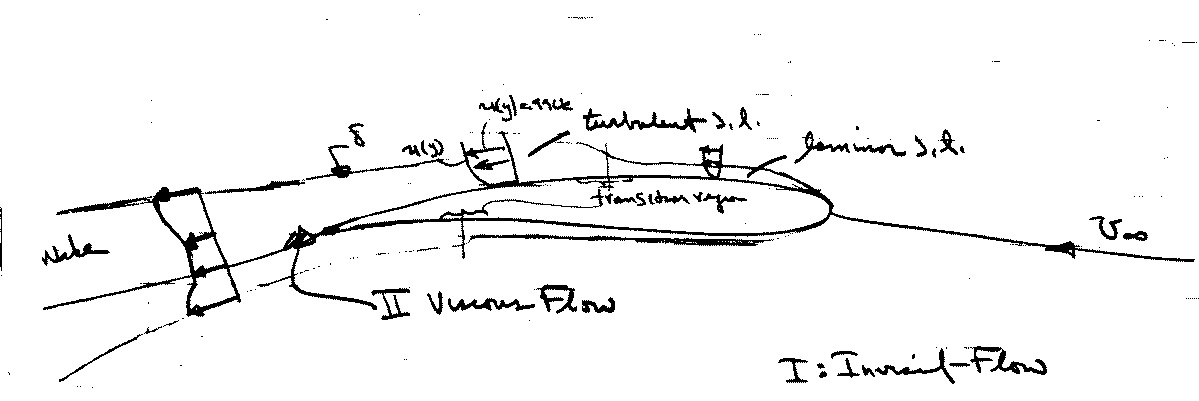 u(y)=.99Ue
δ
u(y)
turbulent b.l.
laminar b.l.
transition region
U∞
Wake
II Viscous Flow
I: Inviscid-Flow